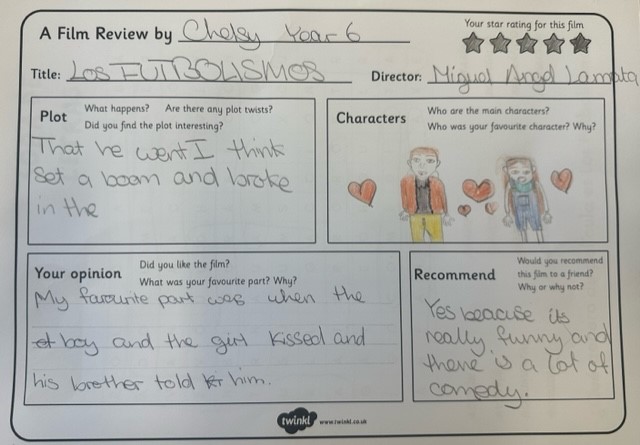 Your star rating for this film
A Film Review by Chelsy Year 6
Title: Los FUTBOLISMOS Director: Miguel Angel Lamata
Plot
What happens? Are there any plot twists?
Did you find the plot interesting?
That he went I think
Set a boom and broke
in the
Characters
Who are the main characters?
Who was your favourite character? Why?
Your opinion
Did you like the film?
What was your favourite part? Why?
My favourite part was when the
boy and the girl kissed and
his brother told him.
Recommend
Would you recommend
this film to a friend?
Why or why not?
Yes beacuse its
really funny and
there is a lot of
comedy.
twinkl www.twinkl.co.uk